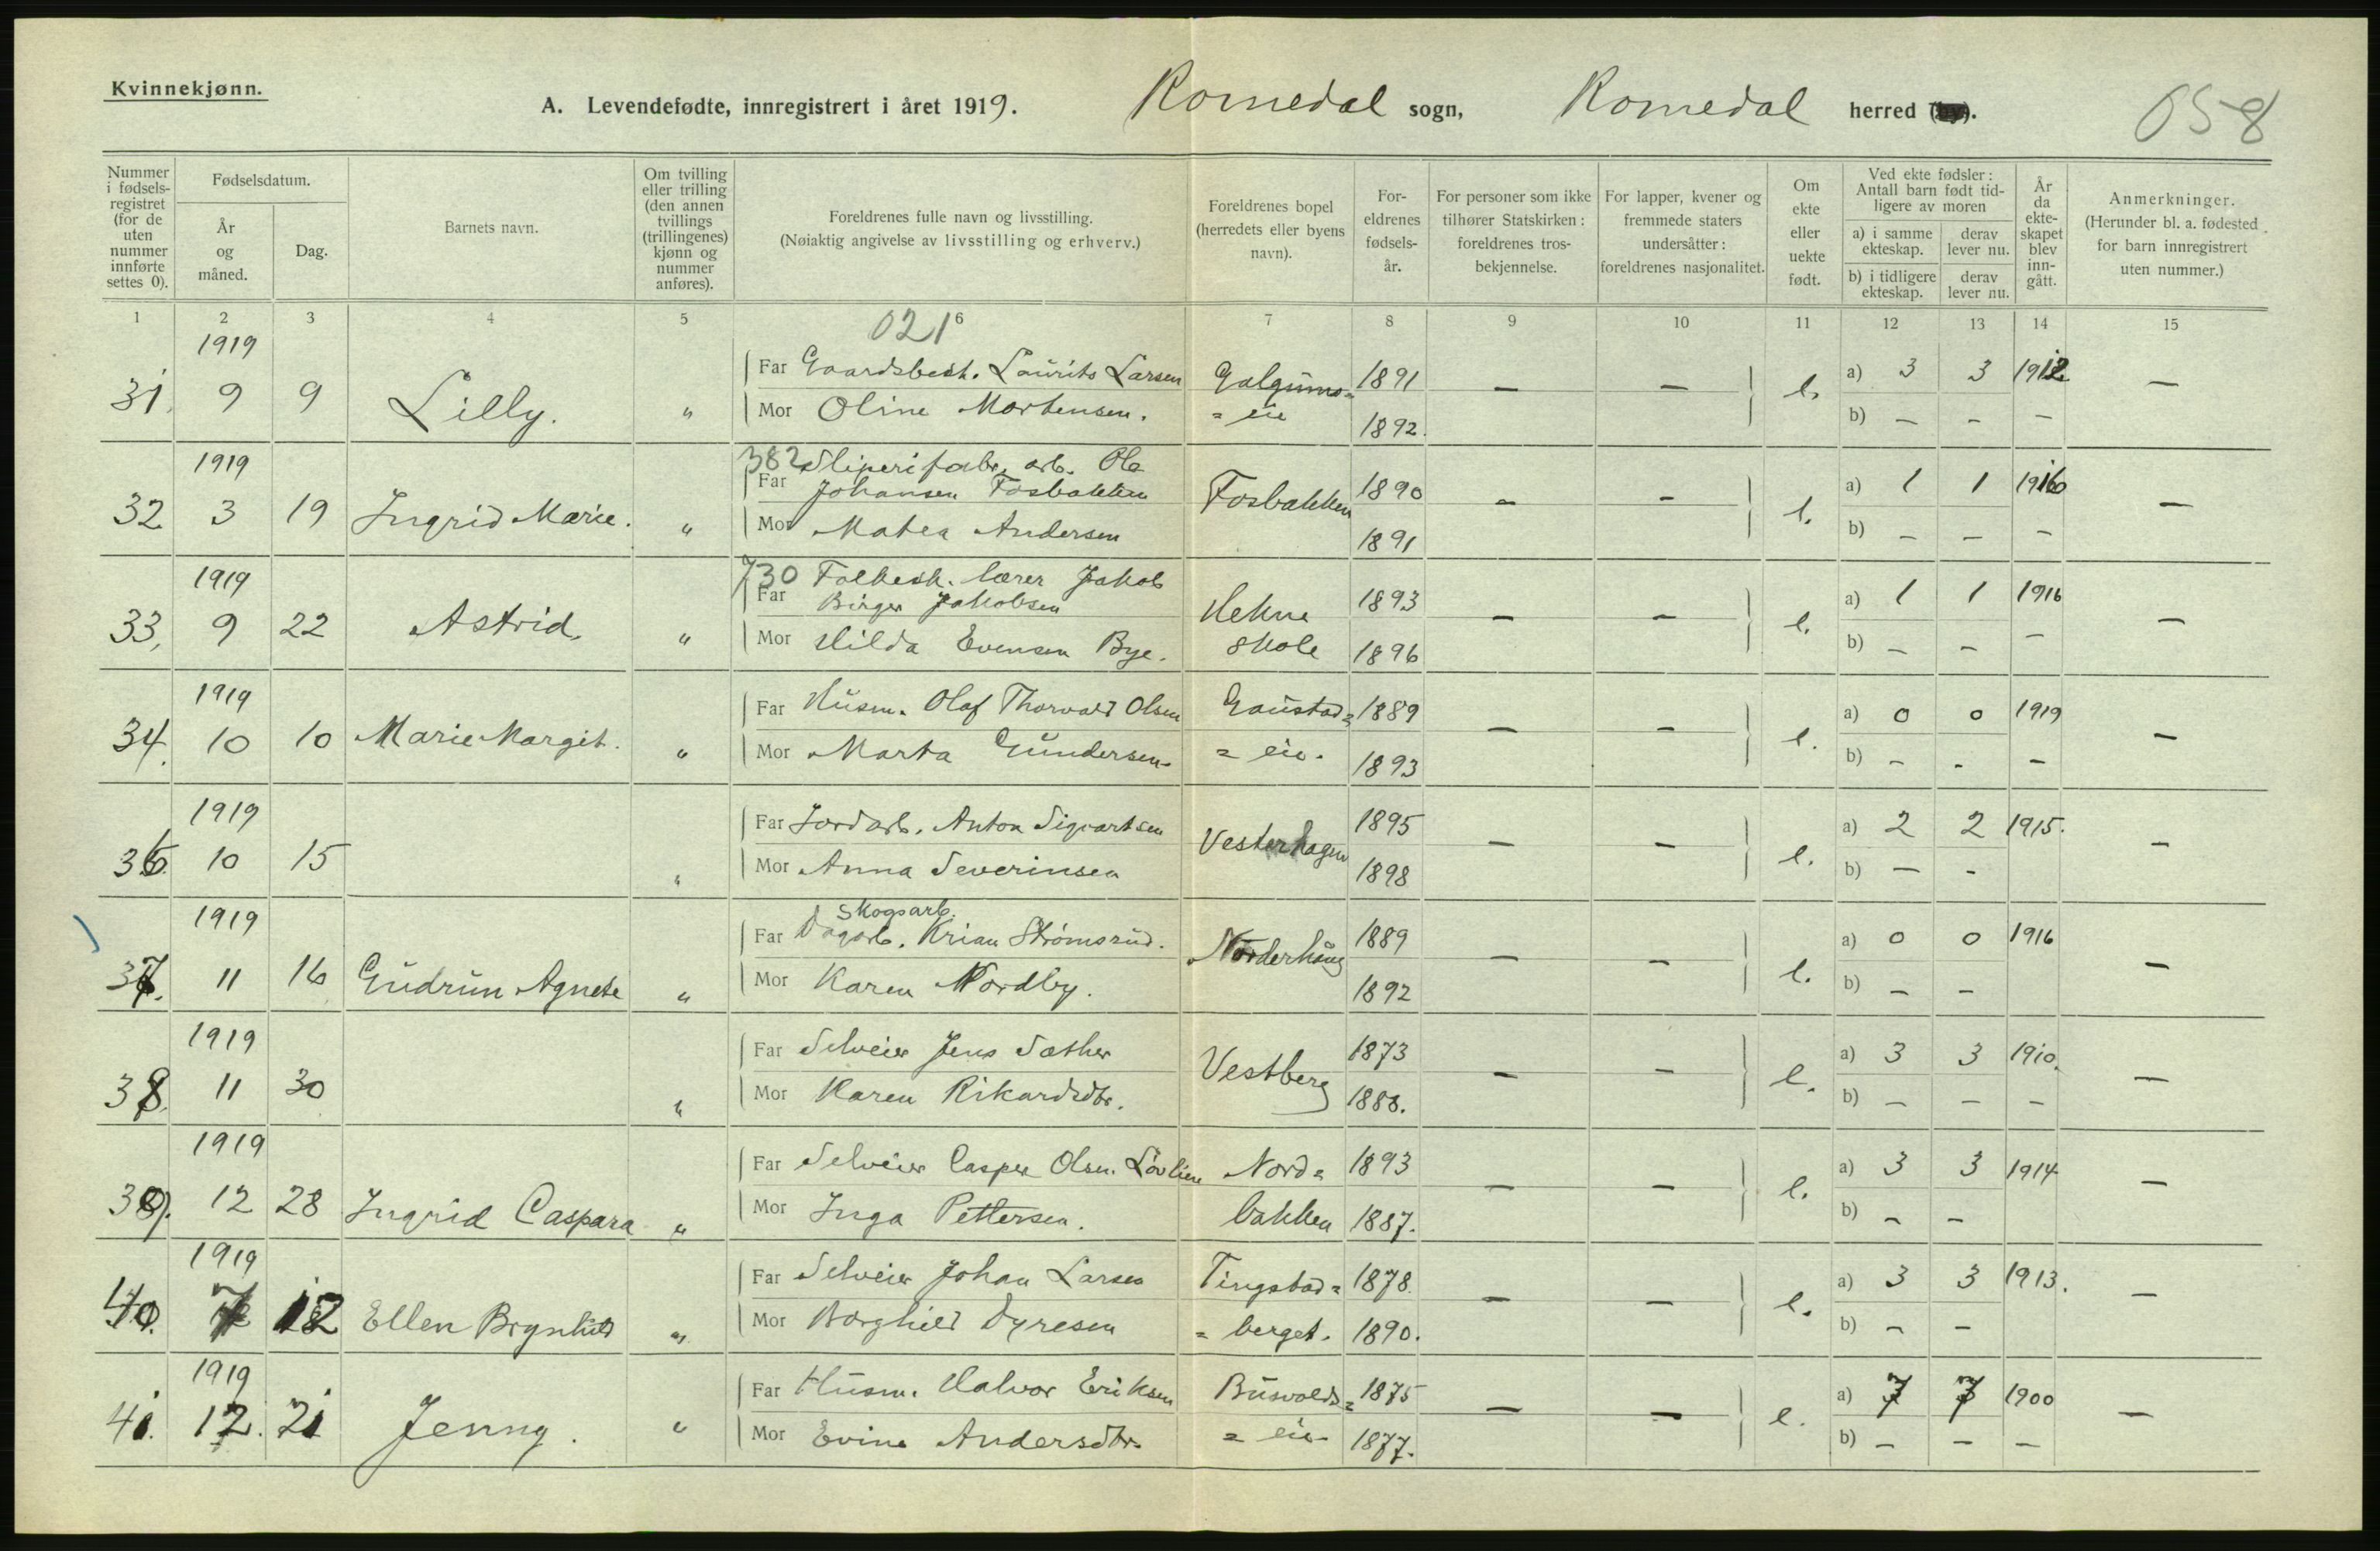 Kvinnekjønn.
A. Levendefødte, innregistrert i året 1919. Romedal sogn, Romedal herred (by). 058
Nummer i fødselsregistret (for de uten nummer innførte settes 0).
Fødselsdatum.
År og måned.
Dag.
Barnets navn.
Om tvilling eller trilling (den annen tvillings (trillingenes) kjønn og nummer anføres).
Foreldrenes fulle navn og livsstilling.
(Nøiaktig angivelse av livsstilling og erhverv.)
Foreldrenes bopel (herredets eller byens navn).
Foreldrenes fødselsår.
For personer som ikke tilhører Statskirken: foreldrenes trosbekjennelse.
For lapper, kvener og fremmede staters undersåtter: foreldrenes nasjonalitet.
Om ekte eller uekte født.
Ved ekte fødsler: Antall barn født tidligere av moren
a) i samme ekteskap.
derav lever nu.
b) i tidligere ekteskap.
derav lever nu.
År da ekteskapet blev inngått.
Anmerkninger.
(Herunder bl. a. fødested for barn innregistrert uten nummer.)
1 2 3 4 5 6 7 8 9 10 11 12 13 14 15
021
1919
31. 9 9 Lilly. "
Far Gaardsbest. Laurits Larsen Galgums= 1891 — — e. a) 3 3 1912 —
Mor Oline Mortensen. = eie 1892. b) — — —
1919
382 Sliperifabr. arb. Ole
32 3 19 Ingrid Marie. "
Far Johansen Fosbakken Fosbakken 1890 — — e. a) 1 1 1916 —
Mor Matea Andersen 1891 b) — — —
1919
730 Folkesk. lærer Jakob
33, 9 22 Astrid. "
Far Birger Jakobsen Hekne 1893 — — e. a) 1 1 1916 —
Mor Hilda Evensen Bye. skole 1896 b) — — —
1919
34. 10 10 Marie Margit. "
Far Husm. Olaf Thorvald Olsen Gaustad= 1889 — — e. a) 0 0 1919 —
Mor Marta Gundersen = eie. 1893 b) — — —
1919
36. 10 15 "
Far Jordarb. Anton Sigvartsen Vesterhagen 1895 — — e. a) 2 2 1915. —
Mor Anna Severinsen 1898 b) — —
1919
Skogsarb.
37. 11 16 Gudrun Agnete "
Far Dagarb. Krian Strømsrud. Norderhaug 1889 — — e. a) 0 0 1916 —
Mor Karen Nordby. 1892 b) — —
1919
38. 11 30 "
Far Selveier Jens Sæther Vestberg 1873 — — e. a) 3 3 1910. —
Mor Karen Rikardsdtr. 1888. b) — — —
1919
39. 12 28 Ingrid Caspara "
Far Selveier Casper Olsen Løvlien Nord= 1893 — — e. a) 3 3 1914 —
Mor Inga Pettersen. bakken 1887. b) — —
1919
40. 12 Ellen Brynhild "
Far Selveier Johan Larsen Tingstad= 1878. — — e. a) 3 3 1913. —
Mor Borghild Dyresen = berget. 1890. b) — —
1919
41. 12. 21 Jenny. "
Far Husm. Halvor Eriksen Busvolds= 1875 — — e. a) 7 7 1900 —
Mor Evine Andersdtr. = eie 1877. b) — — —